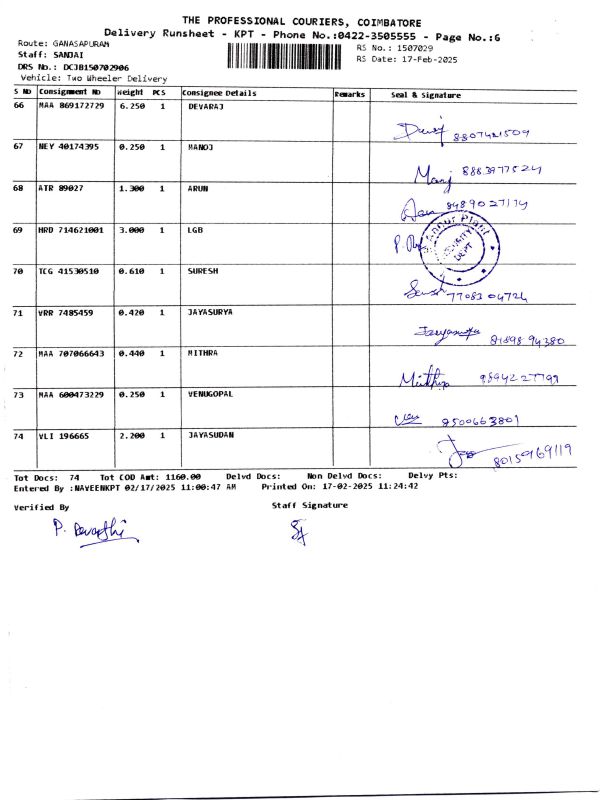 THE PROFESSIONAL COURIERS, COIMBATORE
Delivery Runsheet - KPT - Phone No.:0422-3505555 - Page No.:6
Route: GANASAPURAM
RS No.: 1507029
Staff: SANJAI
RS Date: 17-Feb-2025
DRS No.: DCJB150702906
Vehicle: Two Wheeler Delivery
S No Consignment No Weight PCS Consignee Details Remarks Seal & Signature
66 MAA 869172729 6.250 1 DEVARAJ
8807421509
67 NEY 40174395 0.250 1 MANOJ
Manoj 8883977524
68 ATR 89027 1.300 1 ARUN
8489027174
69 MRD 714621001 3.000 1 LGB
SECURITY DEPT
70 TCG 41530510 0.610 1 SURESH
7708304724
71 VRR 7485459 0.420 1 JAYASURYA
Jayasurya 89898 94380
72 MAA 707066643 0.440 1 MITHRA
Mithra 9894227799
73 MAA 600473229 0.250 1 VENUGOPAL
8500663801
74 VLI 196665 2.200 1 JAYASUDAN
8015969119
Tot Docs: 74 Tot COD Amt: 1160.00 Delvd Docs: Non Delvd Docs: Delvy Pts:
Entered By :NAVEENKPT 02/17/2025 11:00:47 AM Printed On: 17-02-2025 11:24:42
Verified By Staff Signature